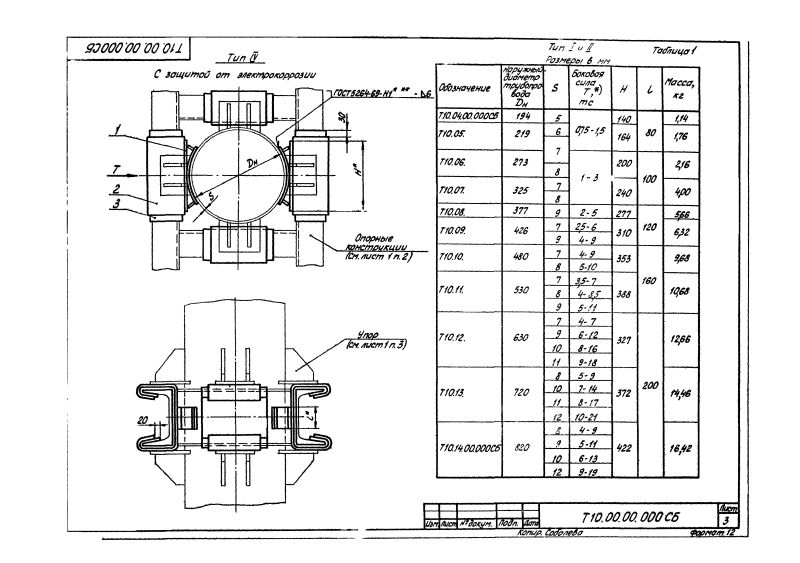 Т10.00.00.000СБ
Тип IV
С защитой от электрокоррозии
ГОСТ 5264-69-Н1
1
30
Dн
Н*
Т
S
2
3
Опорные
конструкции
(см. лист 1 п. 2)
Упор
(см. лист 1 п. 3)
20
L*
Тип I и II
Размеры в мм
Таблица 1
Обозначение | наружный диаметр трубопровода Dн | S | Боковая сила Т,*) тс | Н | L | Масса, кг
Т10.04.00.000СБ | 194 | 5 | 0,75-1,5 | 140 | 80 | 1,14
Т10.05. | 219 | 6 | 164 | 1,76
7
Т10.06. | 273 | 8 | 1-3 | 200 | 100 | 2,16
Т10.07. | 325 | 7 | 240 | 4,00
8
Т10.08. | 377 | 9 | 2-5 | 277 | 120 | 5,66
Т10.09. | 426 | 7 | 2,5-6 | 310 | 6,32
9 | 4-9
Т10.10. | 480 | 7 | 4-9 | 353 | 160 | 9,68
8 | 5-10
Т10.11. | 530 | 7 | 3,5-7 | 388 | 10,68
8 | 4-8,5
9 | 5-11
Т10.12. | 630 | 7 | 4-7 | 327 | 200 | 12,66
9 | 6-12
10 | 8-16
11 | 9-18
Т10.13. | 720 | 8 | 5-9 | 372 | 14,46
10 | 7-14
11 | 8-17
12 | 10-21
Т10.14.00.000СБ | 820 | 8 | 4-9 | 422 | 16,42
9 | 5-11
10 | 6-13
12 | 9-19
Изм. Лист № докум. Подп. Дата
Т10.00.00.000 СБ
Лист
3
Копир. Соболева
Формат 12